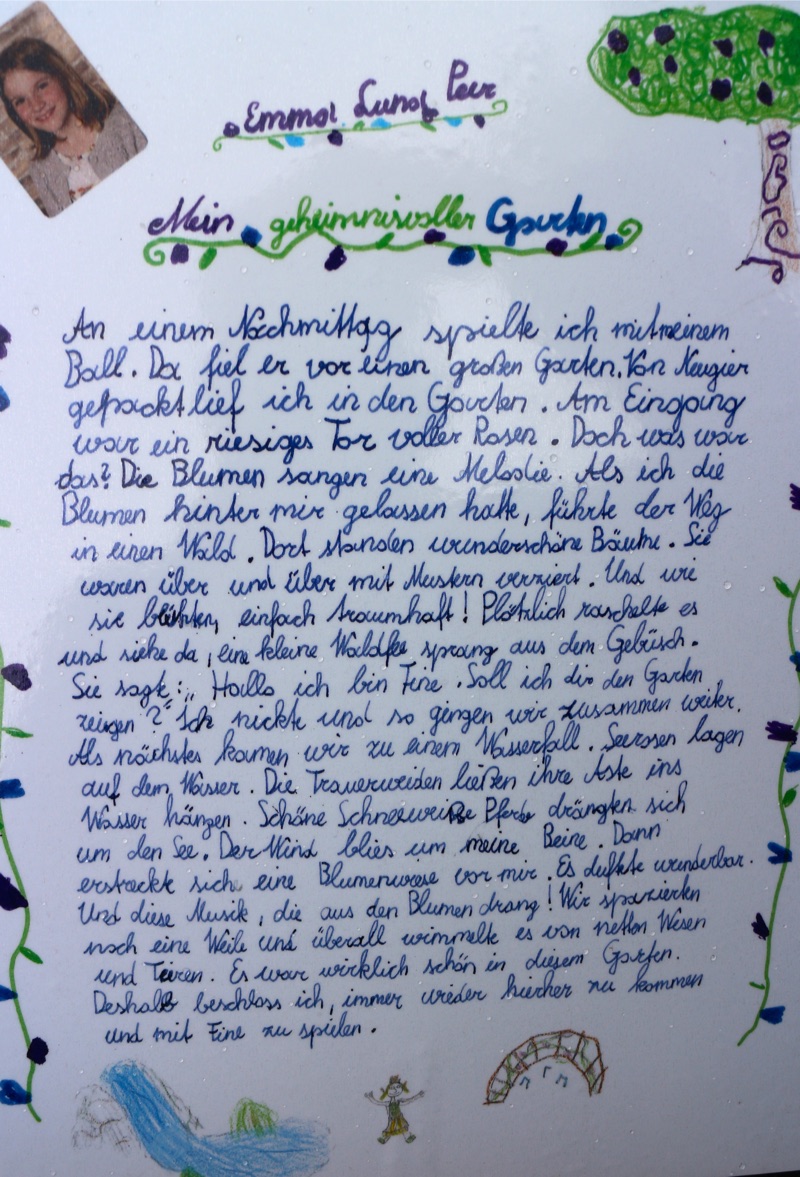 Emma Luna Peer
Mein geheimnisvoller Garten
An einem Nachmittag spielte ich mit meinem
Ball. Da fiel er vor einen großen Garten. Von Neugier
gepackt lief ich in den Garten. Am Eingang
war ein riesiges Tor voller Rosen. Doch was war
das? Die Blumen sangen eine Melodie. Als ich die
Blumen hinter mir gelassen hatte, führte der Weg
in einen Wald. Dort standen wunderschöne Bäume. Sie
waren über und über mit Mustern verziert. Und wie
sie blühten, einfach traumhaft! Plötzlich raschelte es
und siehe da, eine kleine Waldfee sprang aus dem Gebüsch.
Sie sagte: „Hallo ich bin Fine. Soll ich dir den Garten
zeigen?" Ich nickte und so gingen wir zusammen weiter.
Als nächstes kamen wir zu einem Wasserfall. Seerosen lagen
auf dem Wasser. Die Trauerweiden ließen ihre Äste ins
Wasser hängen. Schöne Schneeweiße Pferde drängten sich
um den See. Der Wind blies um meine Beine. Dann
erstreckt sich eine Blumenwiese vor mir. Es duftete wunderbar.
Und diese Musik, die aus den Blumen drang! Wir spazierten
noch eine Weile und überall wimmelte es von netten Wesen
und Tieren. Es war wirklich schön in diesem Garten.
Deshalb beschloss ich, immer wieder hierher zu kommen
und mit Fine zu spielen.